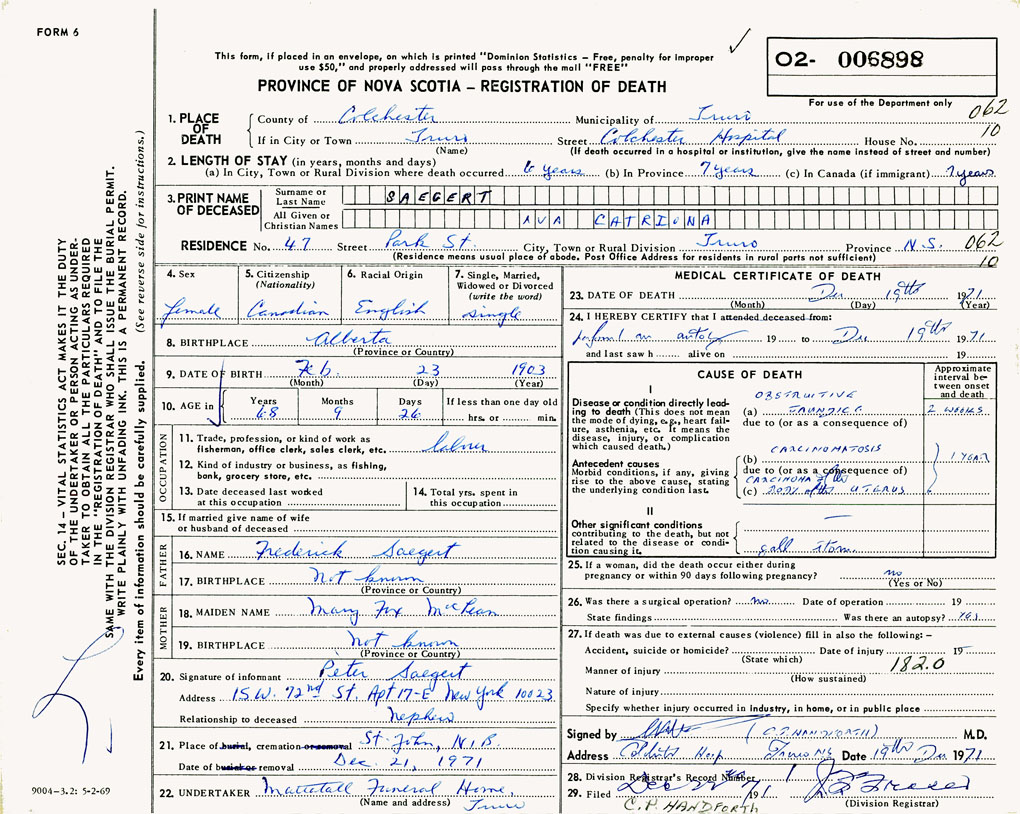 FORM 6
This form, if placed in an envelope, on which is printed "Dominion Statistics – Free, penalty for improper
use $50," and properly addressed will pass through the mail "FREE"
PROVINCE OF NOVA SCOTIA – REGISTRATION OF DEATH
O2- 006898
For use of the Department only
062
10
1. PLACE OF DEATH
County of Colchester Municipality of Truro
If in City or Town Truro Street Colchester Hospital House No.
(Name) (If death occurred in a hospital or institution, give the name instead of street and number)
2. LENGTH OF STAY (in years, months and days)
(a) In City, Town or Rural Division where death occurred 6 years (b) In Province 7 years (c) In Canada (if immigrant) 7 years
3. PRINT NAME OF DECEASED
Surname or Last Name SAEGERT
All Given or Christian Names AVA CATRIONA
RESIDENCE No. 47 Street Park St. City, Town or Rural Division Truro Province N.S. 062
(Residence means usual place of abode. Post Office Address for residents in rural parts not sufficient) 10
4. Sex
female
5. Citizenship
(Nationality)
Canadian
6. Racial Origin
English
7. Single, Married,
Widowed or Divorced
(write the word)
single
8. BIRTHPLACE Alberta
(Province or Country)
9. DATE OF BIRTH Feb. 23 1903
(Month) (Day) (Year)
10. AGE in
Years Months Days If less than one day old
68 9 26 hrs. or min.
OCCUPATION
11. Trade, profession, or kind of work as
fisherman, office clerk, sales clerk, etc.
12. Kind of industry or business, as fishing,
bank, grocery store, etc.
13. Date deceased last worked
at this occupation
14. Total yrs. spent in
this occupation
15. If married give name of wife
or husband of deceased
FATHER
16. NAME Frederick Saegert
17. BIRTHPLACE Not known
(Province or Country)
MOTHER
18. MAIDEN NAME Mary Fox McLean
19. BIRTHPLACE Not known
(Province or Country)
20. Signature of informant Peter Saegert
Address 15 W. 72nd St. Apt 17-E New York 10023
Relationship to deceased nephew
21. Place of burial, cremation or removal St. John, N.B.
Date of burial or removal Dec. 21, 1971
22. UNDERTAKER Mattatall Funeral Home,
(Name and address) Truro
MEDICAL CERTIFICATE OF DEATH
23. DATE OF DEATH Dec 19th 1971
(Month) (Day) (Year)
24. I HEREBY CERTIFY that I attended deceased from:
19 to Dec 19th 1971
and last saw h alive on 19
CAUSE OF DEATH
Approximate
interval be-
tween onset
and death
I
Disease or condition directly lead-
ing to death (This does not mean
the mode of dying, e.g., heart fail-
ure, asthenia, etc. It means the
disease, injury, or complication
which caused death.)
OBSTRUCTIVE
(a) JAUNDICE 2 WEEKS
due to (or as a consequence of)
Antecedent causes
Morbid conditions, if any, giving
rise to the above cause, stating
the underlying condition last.
CARCINOMATOSIS
(b)
due to (or as a consequence of)
CARCINOMA of the
(c) BODY of the UTERUS
1 YEAR
II
Other significant conditions
contributing to the death, but not
related to the disease or condi-
tion causing it.
gall stone
25. If a woman, did the death occur either during
pregnancy or within 90 days following pregnancy? no
(Yes or No)
26. Was there a surgical operation? no Date of operation 19
State findings Was there an autopsy? yes
27. If death was due to external causes (violence) fill in also the following: –
Accident, suicide or homicide? Date of injury 19
(State which)
Manner of injury 182.0
(How sustained)
Nature of injury
Specify whether injury occurred in industry, in home, or in public place
Signed by (C.P. HANDFORTH) M.D.
Address Hosp Truro NS Date 19th Dec 1971
28. Division Registrar's Record Number
29. Filed Dec 1971
(Division Registrar)
C.P. HANDFORTH
SEC. 14 – VITAL STATISTICS ACT MAKES IT THE DUTY
OF THE UNDERTAKER OR PERSON ACTING AS UNDER-
TAKER TO OBTAIN ALL THE PARTICULARS REQUIRED
IN THE "REGISTRATION OF DEATH" AND TO FILE THE
SAME WITH THE DIVISION REGISTRAR WHO SHALL ISSUE THE BURIAL PERMIT.
WRITE PLAINLY WITH UNFADING INK. THIS IS A PERMANENT RECORD.
Every item of information should be carefully supplied. (See reverse side for instructions.)
9004-3.2: 5-2-69